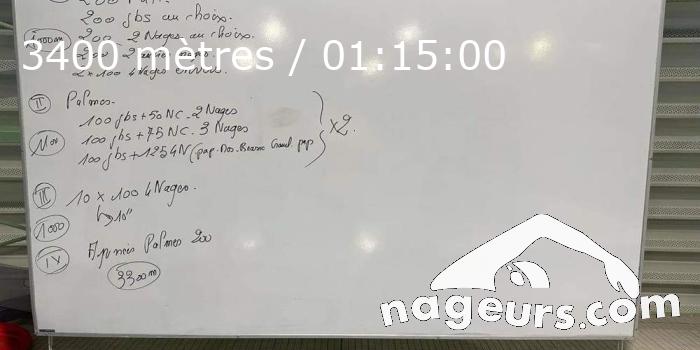 200 jbs au choix.
1000m 200 2 Nages au choix.
200 2 nages
3400 mètres / 01:15:00
2 x 100 4 Nages
II Palmes.
100 jbs + 50 NC. 2 Nages
100 jbs + 75 NC. 3 Nages
1100
x2.
100 jbs + 125 4N (pap. Dos. Brasse Crawl. pap
III 10 x 100 4 Nages.
↳ 10"
1000
IV Apnées Palmes 200
3300m
nageurs.com